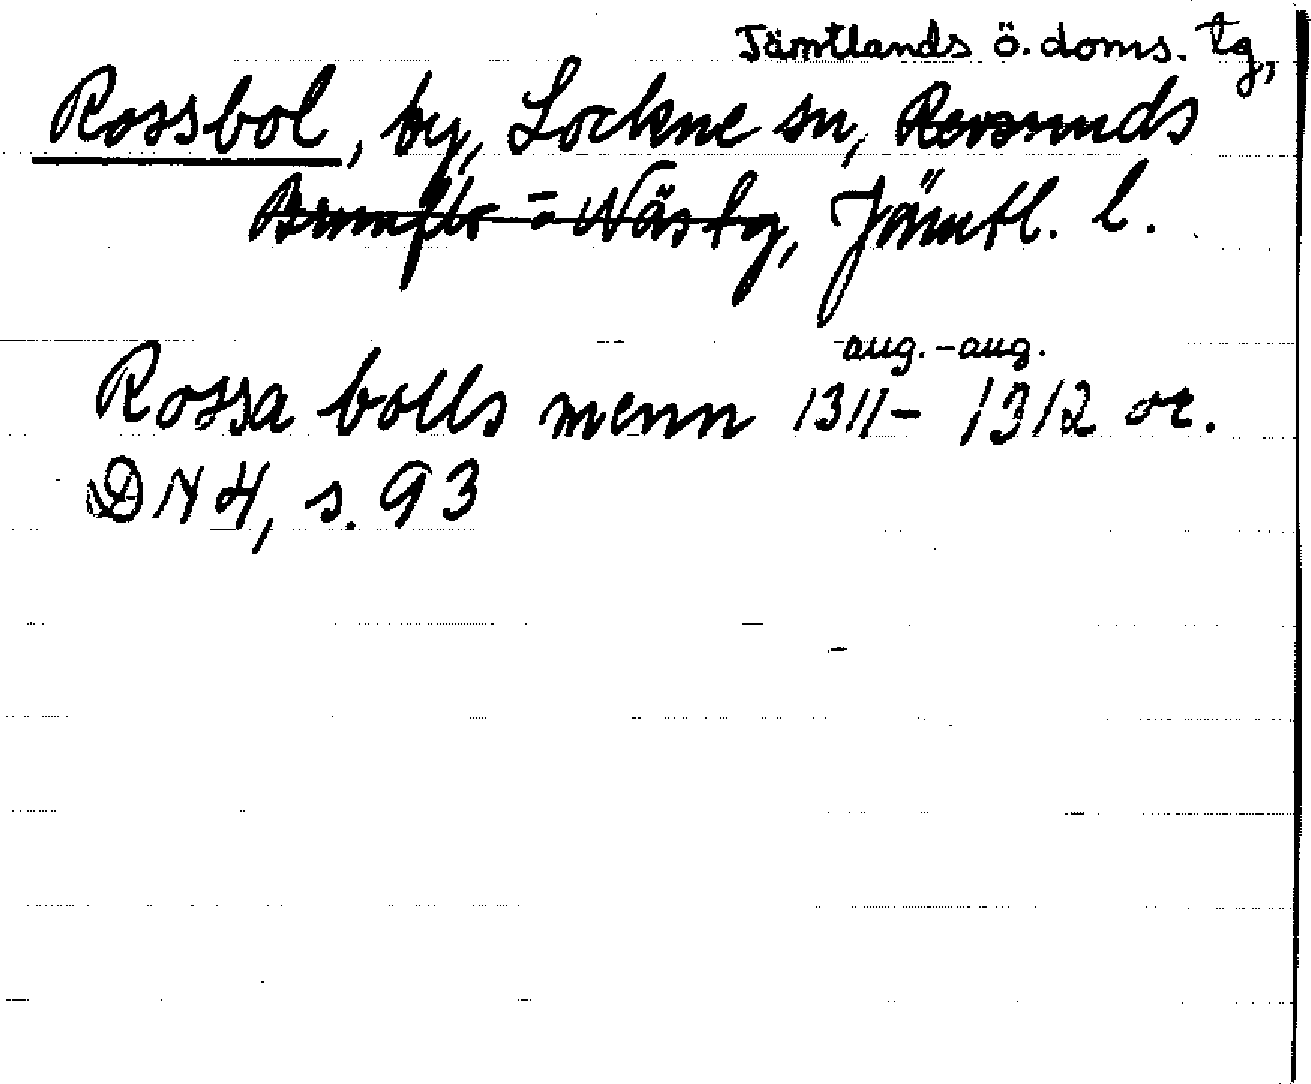 Jämtlands ö. doms. tg,
Rossbol, by, Lockne sn, Revsunds
Brunflo - Näs tg, Jämtl. l.
aug. - aug.
Rossa bolls menn 1311 - 1312 or.
DN 4, s. 93